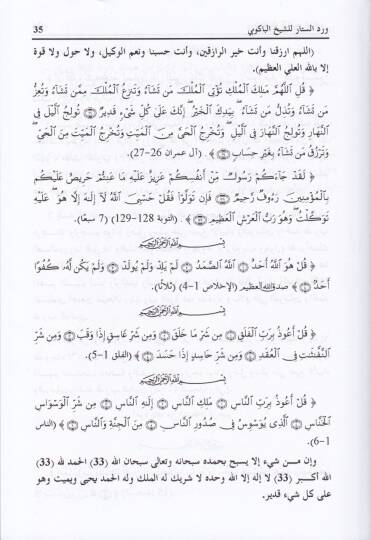 ورد الستار للشيخ الباكوبي 35
(اللهم ارزقنا وأنت خير الرازقين، وأنت حسبنا ونعم الوكيل، ولا حول ولا قوة
إلا بالله العلي العظيم).
﴿ قُلِ اللَّهُمَّ مَالِكَ الْمُلْكِ تُؤْتِي الْمُلْكَ مَن تَشَاءُ وَتَنزِعُ الْمُلْكَ مِمَّن تَشَاءُ وَتُعِزُّ
مَن تَشَاءُ وَتُذِلُّ مَن تَشَاءُ بِيَدِكَ الْخَيْرُ إِنَّكَ عَلَىٰ كُلِّ شَيْءٍ قَدِيرٌ ۝ تُولِجُ اللَّيْلَ فِي
النَّهَارِ وَتُولِجُ النَّهَارَ فِي اللَّيْلِ وَتُخْرِجُ الْحَيَّ مِنَ الْمَيِّتِ وَتُخْرِجُ الْمَيِّتَ مِنَ الْحَيِّ
وَتَرْزُقُ مَن تَشَاءُ بِغَيْرِ حِسَابٍ ۝ ﴾. (آل عمران 26-27).
﴿ لَقَدْ جَاءَكُمْ رَسُولٌ مِّنْ أَنفُسِكُمْ عَزِيزٌ عَلَيْهِ مَا عَنِتُّمْ حَرِيصٌ عَلَيْكُم
بِالْمُؤْمِنِينَ رَءُوفٌ رَّحِيمٌ ۝ فَإِن تَوَلَّوْا فَقُلْ حَسْبِيَ اللَّهُ لَا إِلَٰهَ إِلَّا هُوَ عَلَيْهِ
تَوَكَّلْتُ وَهُوَ رَبُّ الْعَرْشِ الْعَظِيمِ ۝ ﴾. (التوبة 128-129) (7 سبعًا).
بِسْمِ اللَّهِ الرَّحْمَٰنِ الرَّحِيمِ
﴿ قُلْ هُوَ اللَّهُ أَحَدٌ ۝ اللَّهُ الصَّمَدُ ۝ لَمْ يَلِدْ وَلَمْ يُولَدْ ۝ وَلَمْ يَكُن لَّهُ كُفُوًا
أَحَدٌ ۝ ﴾ صدق الله العظيم (الإخلاص 1-4) (ثلاثًا).
بِسْمِ اللَّهِ الرَّحْمَٰنِ الرَّحِيمِ
﴿ قُلْ أَعُوذُ بِرَبِّ الْفَلَقِ ۝ مِن شَرِّ مَا خَلَقَ ۝ وَمِن شَرِّ غَاسِقٍ إِذَا وَقَبَ ۝ وَمِن شَرِّ
النَّفَّاثَاتِ فِي الْعُقَدِ ۝ وَمِن شَرِّ حَاسِدٍ إِذَا حَسَدَ ۝ ﴾ (الفلق 1-5).
بِسْمِ اللَّهِ الرَّحْمَٰنِ الرَّحِيمِ
﴿ قُلْ أَعُوذُ بِرَبِّ النَّاسِ ۝ مَلِكِ النَّاسِ ۝ إِلَٰهِ النَّاسِ ۝ مِن شَرِّ الْوَسْوَاسِ
الْخَنَّاسِ ۝ الَّذِي يُوَسْوِسُ فِي صُدُورِ النَّاسِ ۝ مِنَ الْجِنَّةِ وَالنَّاسِ ۝ ﴾ (الناس
1-6).
وإن مـن شيء إلا يسبح بحمده سبحانه وتعالى سبحان الله (33) الحمد لله (33)
الله أكـبر (33) لا إله إلا الله وحده لا شريك له الملك وله الحمد يحيي ويميت وهو
على كل شيء قدير.